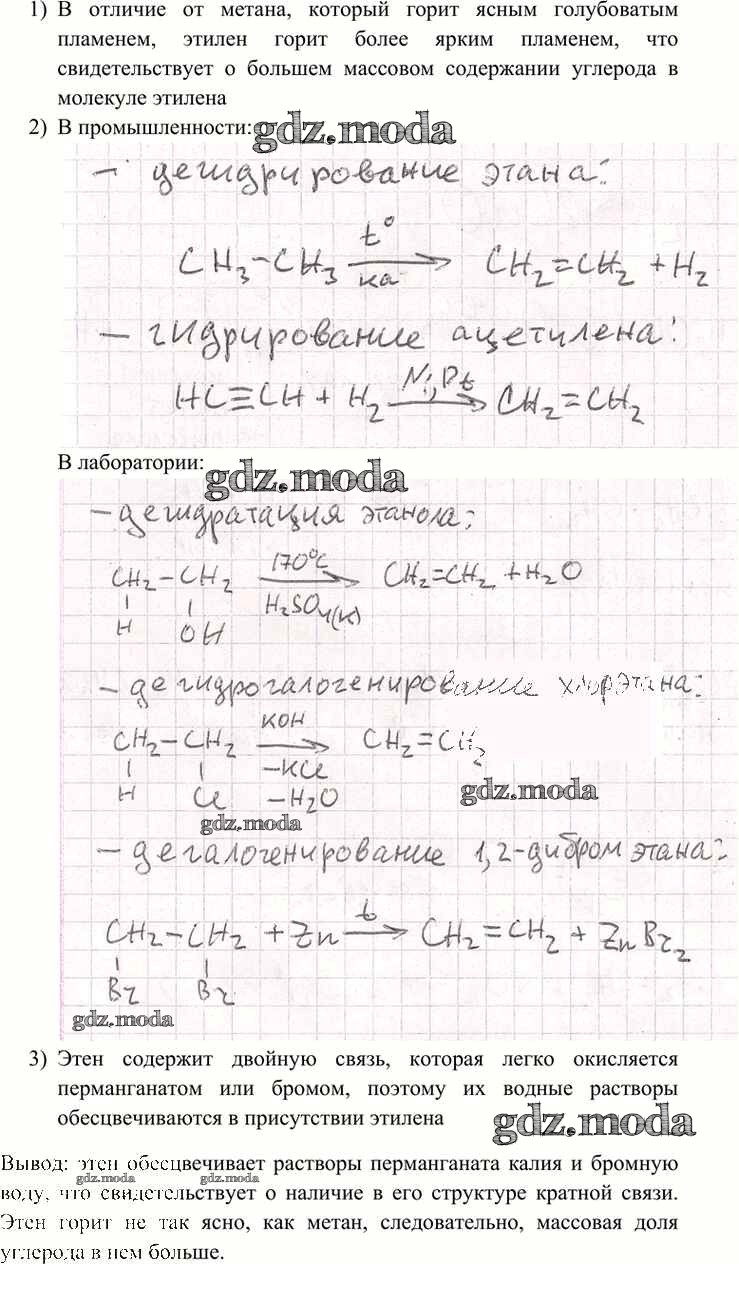 1) В отличие от метана, который горит ясным голубоватым
пламенем, этилен горит более ярким пламенем, что
свидетельствует о большем массовом содержании углерода в
молекуле этилена
2) В промышленности: gdz.moda
– дегидрирование этана:
t°
CH₃–CH₃ → CH₂=CH₂ + H₂
ка
– гидрирование ацетилена:
Ni, Pt
HC≡CH + H₂ → CH₂=CH₂
В лаборатории: gdz.moda
– дегидратация этанола:
170°C
CH₂–CH₂ → CH₂=CH₂ + H₂O
H₂SO₄(к)
H OH
– дегидрогалогенирование хлорэтана:
KOH
CH₂–CH₂ → CH₂=CH₂
–KCl
H Cl –H₂O
gdz.moda
gdz.moda
– дегалогенирование 1,2-дибромэтана:
t
CH₂–CH₂ + Zn → CH₂=CH₂ + ZnBr₂
Br Br
gdz.moda
3) Этен содержит двойную связь, которая легко окисляется
перманганатом или бромом, поэтому их водные растворы
обесцвечиваются в присутствии этилена gdz.moda
Вывод: этен обесцвечивает растворы перманганата калия и бромную
gdz.moda gdz.moda
воду, что свидетельствует о наличие в его структуре кратной связи.
Этен горит не так ясно, как метан, следовательно, массовая доля
углерода в нем больше.
gdz.moda gdz.moda